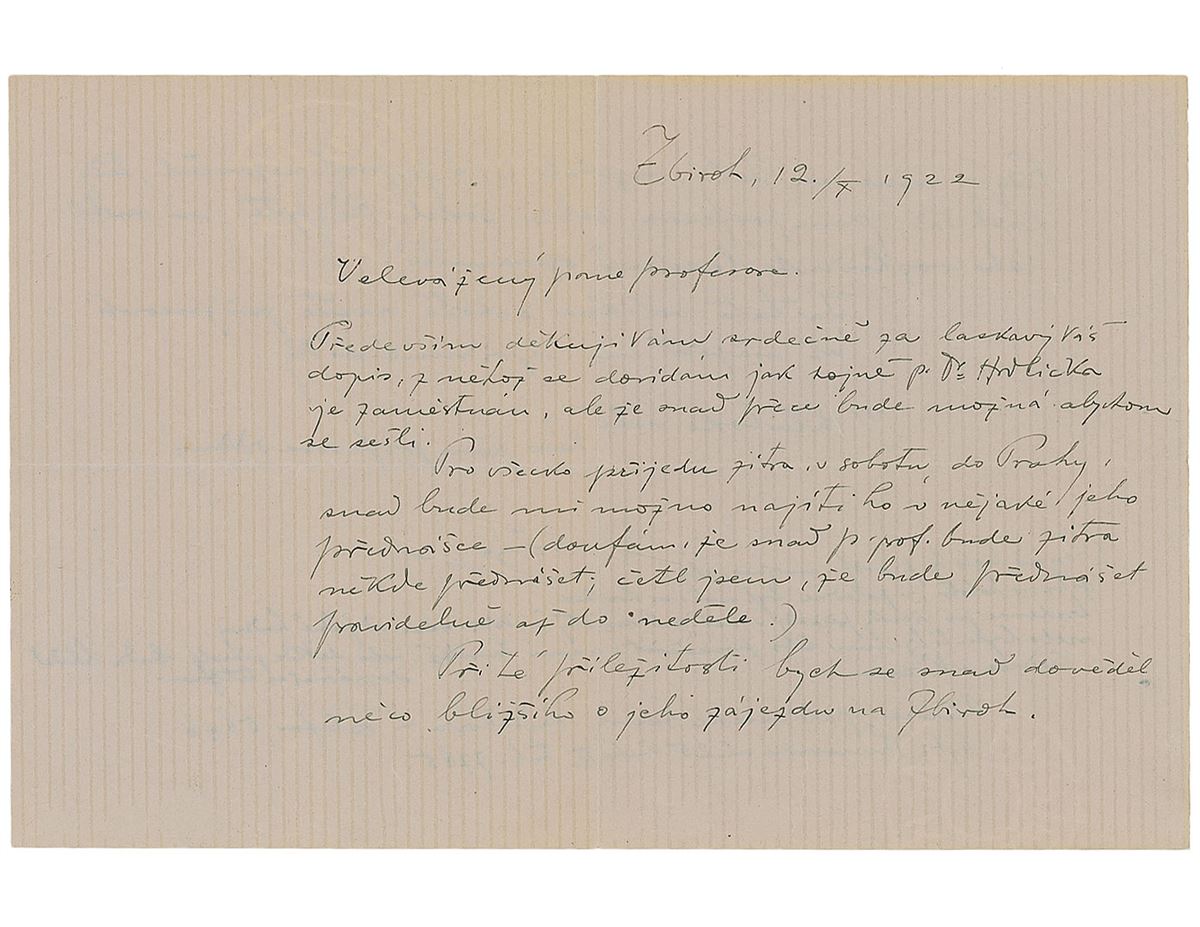 Zbiroh, 12./X 1922
Velevážený pane profesore.
Především děkuji Vám srdečně za laskavý Váš
dopis, z něhož se dovídám jak hojně p. Dr Hrdlička
je zaměstnán, ale že snad přece bude možná abychom
se sešli.
Pro všecko přijedu zítra, v sobotu, do Prahy,
snad bude mi možno najíti ho v nějaké jeho
přednášce – (doufám, že snad p. prof. bude zítra
někde přednášet; četl jsem, že bude přednášet
pravidelně až do neděle.)
Při té příležitosti bych se snad dověděl
něco bližšího o jeho zájezdu na Zbiroh.